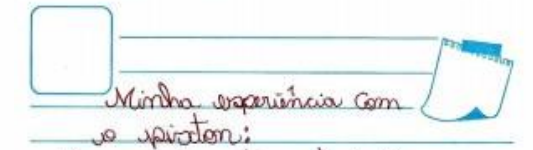 Minha experiência com
o pixton: